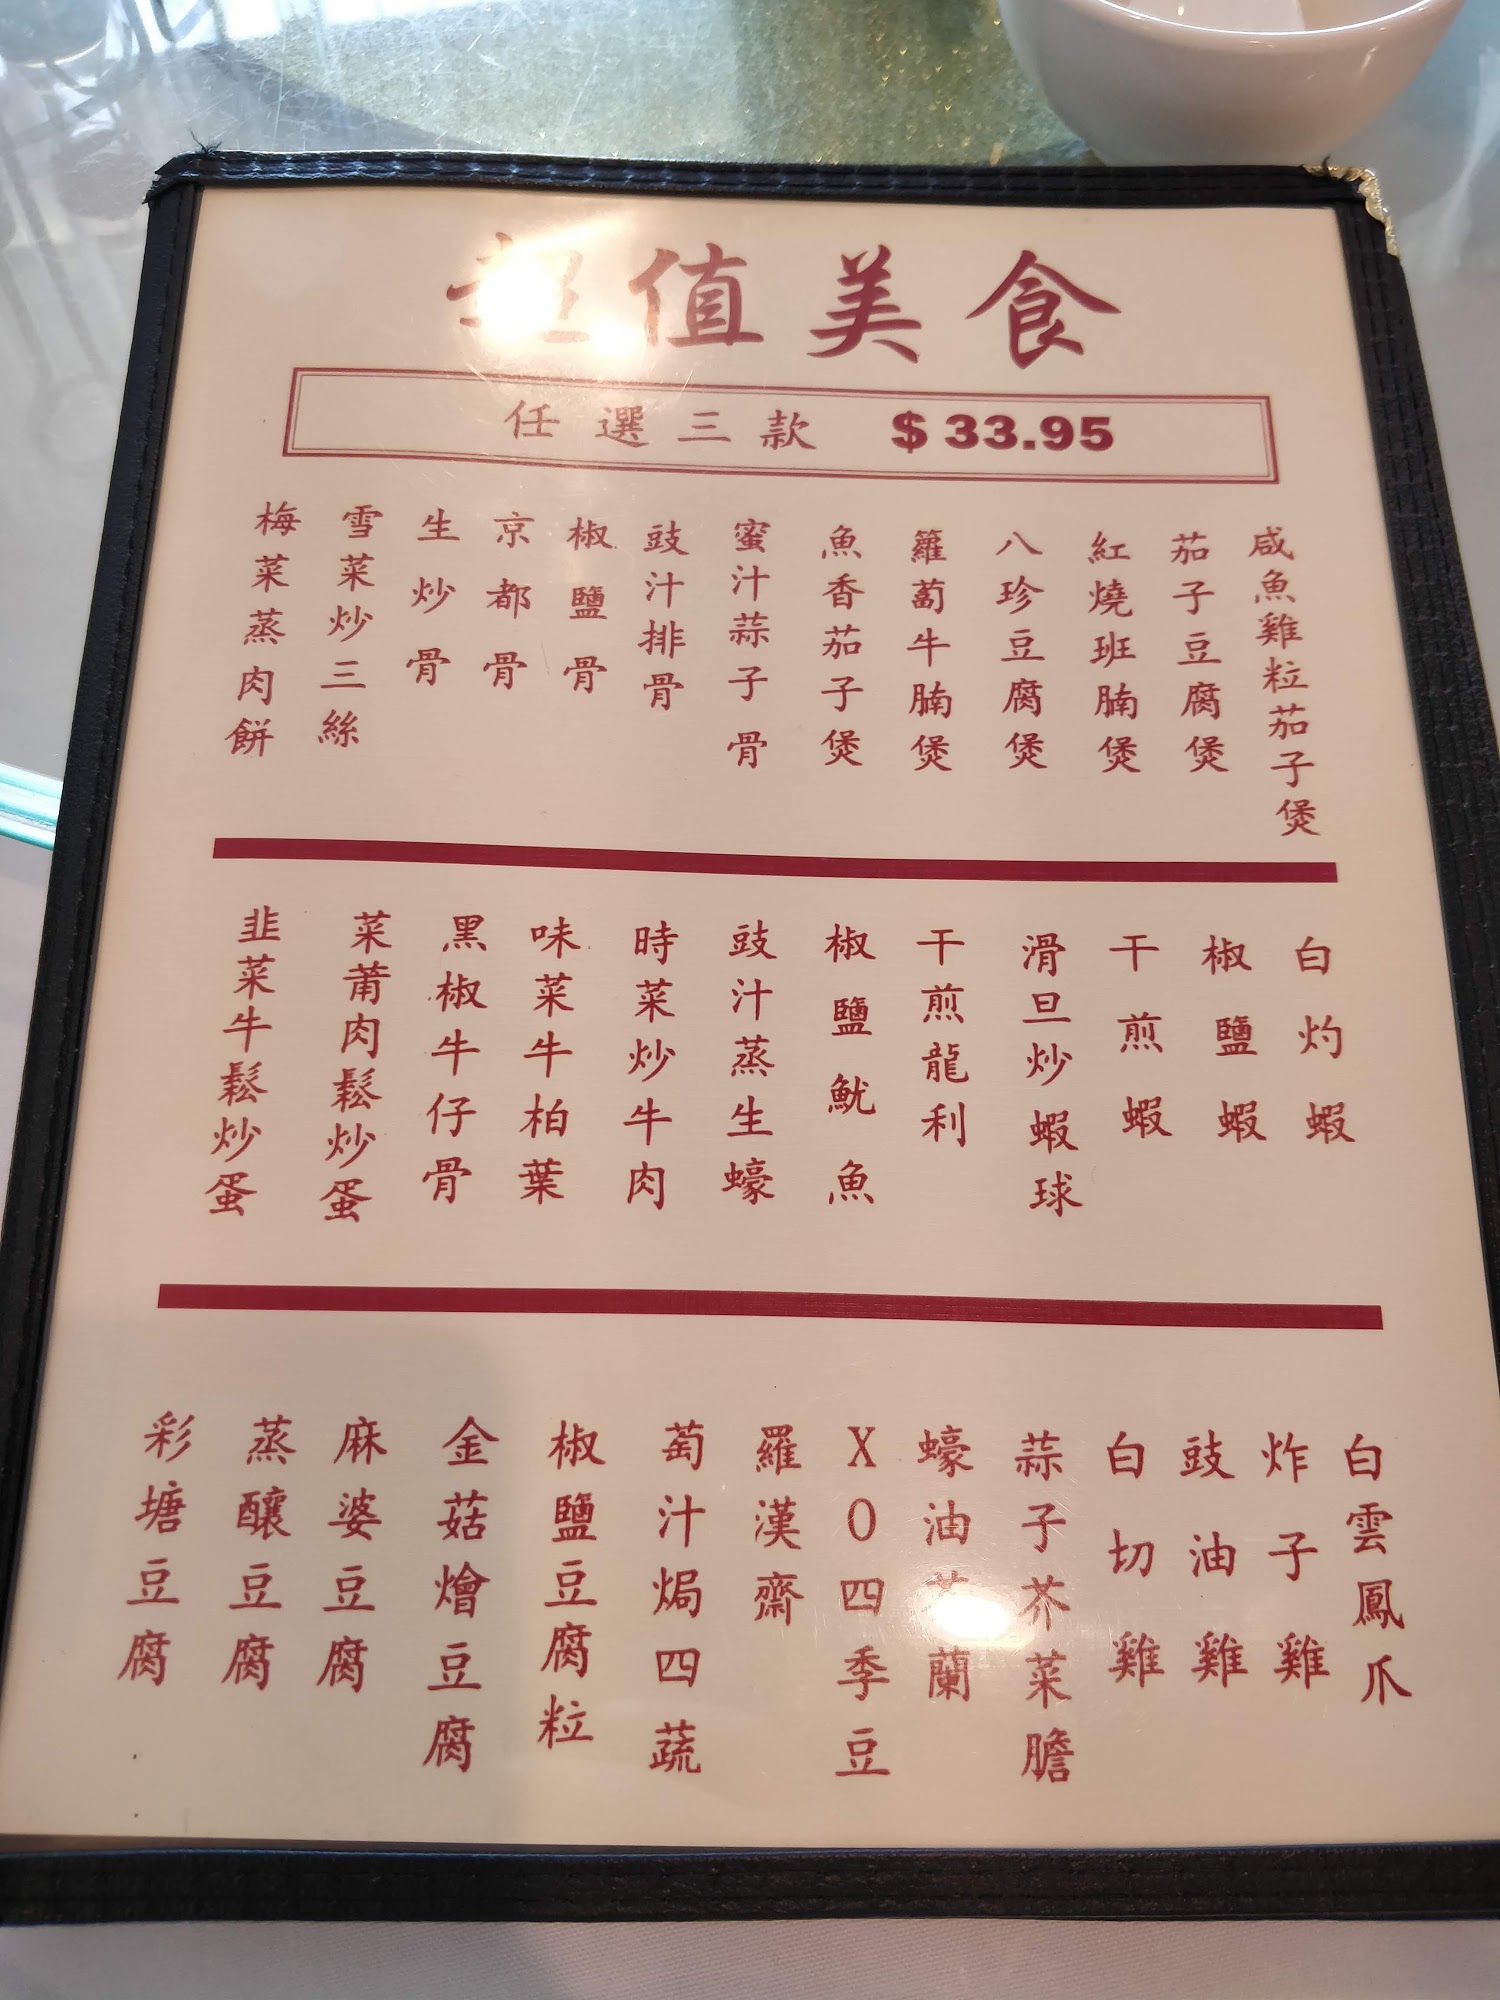 超值美食
任選三款 $33.95
咸魚雞粒茄子煲
茄子豆腐煲
紅燒班腩煲
八珍豆腐煲
蘿蔔牛腩煲
魚香茄子煲
蜜汁蒜子骨
豉汁排骨
椒鹽骨
京都骨
生炒骨
雪菜炒三絲
梅菜蒸肉餅
白灼蝦
椒鹽蝦
干煎蝦
滑旦炒蝦球
干煎龍利
椒鹽魷魚
豉汁蒸生蠔
時菜炒牛肉
味菜牛柏葉
黑椒牛仔骨
菜莆肉鬆炒蛋
韭菜牛鬆炒蛋
白雲鳳爪
炸子雞
豉油雞
白切雞
蒜子芥菜膽
蠔油芥蘭
XO四季豆
羅漢齋
萄汁焗四蔬
椒鹽豆腐粒
金菇燴豆腐
麻婆豆腐
蒸釀豆腐
彩塘豆腐